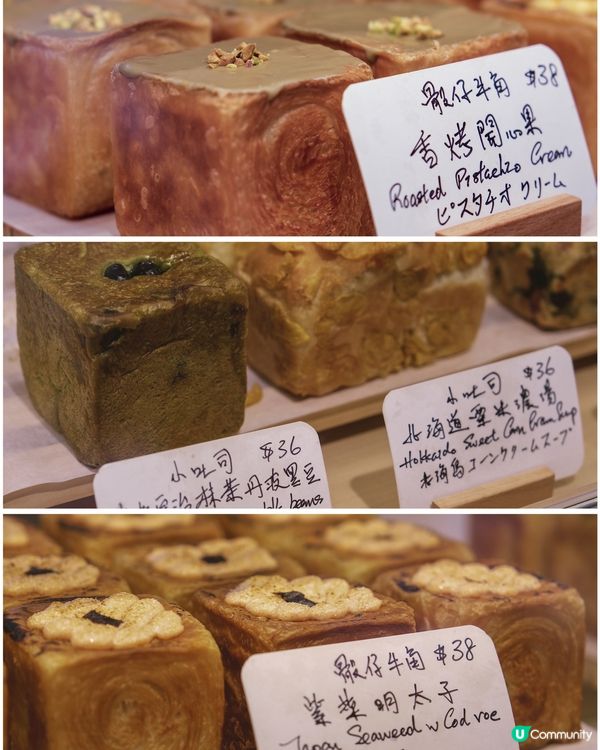 骰仔牛角 $38
香烤開心果
Roasted Pistachio Cream
ピスタチオクリーム
小吐司 $36
北海道粟米濃湯
Hokkaido Sweet Corn Cream Soup
北海島コーンクリームスープ
小吐司 $36
抹茶丹波黑豆
beans
骰仔牛角 $38
紫菜明太子
Japan Seaweed w Cod roe
U Community